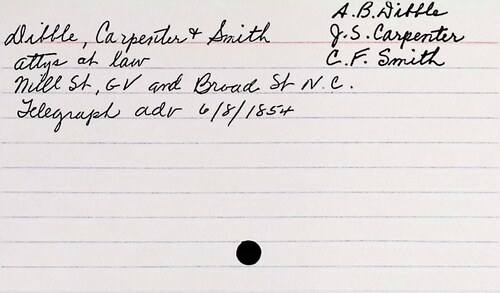 A.B. Dibble
Dibble, Carpenter & Smith
J.S. Carpenter
attys at law
C.F. Smith
Mill St, GV and Broad St N.C.
Telegraph adv 6/8/1854